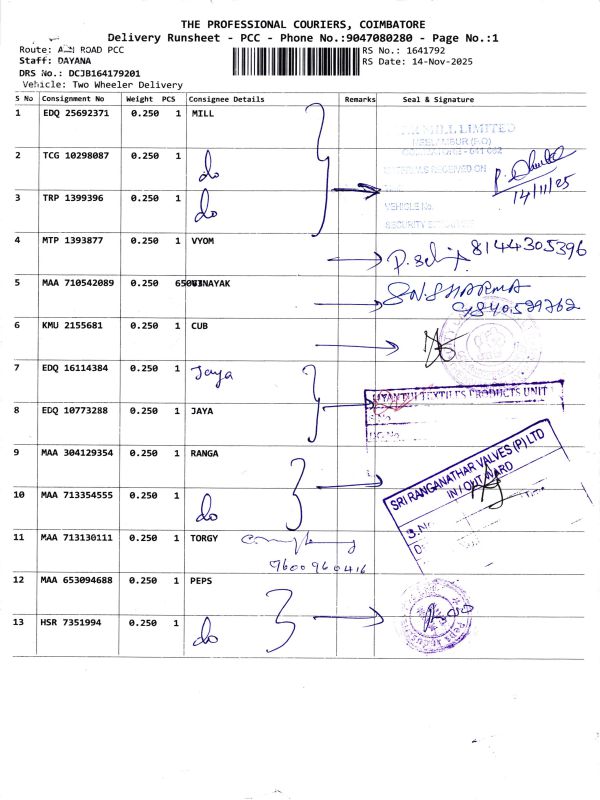 THE PROFESSIONAL COURIERS, COIMBATORE
Delivery Runsheet - PCC - Phone No.:9047080280 - Page No.:1
Route: ROAD PCC
RS No.: 1641792
Staff: DAYANA
RS Date: 14-Nov-2025
DRS No.: DCJB164179201
Vehicle: Two Wheeler Delivery
S No Consignment No Weight PCS Consignee Details Remarks Seal & Signature
1 EDQ 25692371 0.250 1 MILL
MILL LIMITED
2 TCG 10298087 0.250 1 do
RECEIVED ON
14/11/25
3 TRP 1399396 0.250 1 do
VEHICLE No.
SECURITY
4 MTP 1393877 0.250 1 VYOM
8144305396
5 MAA 710542089 0.250 VINAYAK
S.N.SHARMA
6 KMU 2155681 0.250 1 CUB
7 EDQ 16114384 0.250 1 Jaya
TEXTILES PRODUCTS UNIT
8 EDQ 10773288 0.250 1 JAYA
9 MAA 304129354 0.250 1 RANGA
SRI RANGANATHAR VALVES (P) LTD
IN / OUT WARD
10 MAA 713354555 0.250 1 do
S.No
11 MAA 713130111 0.250 1 TORGY
9600960416
12 MAA 653094688 0.250 1 PEPS
13 HSR 7351994 0.250 1 do